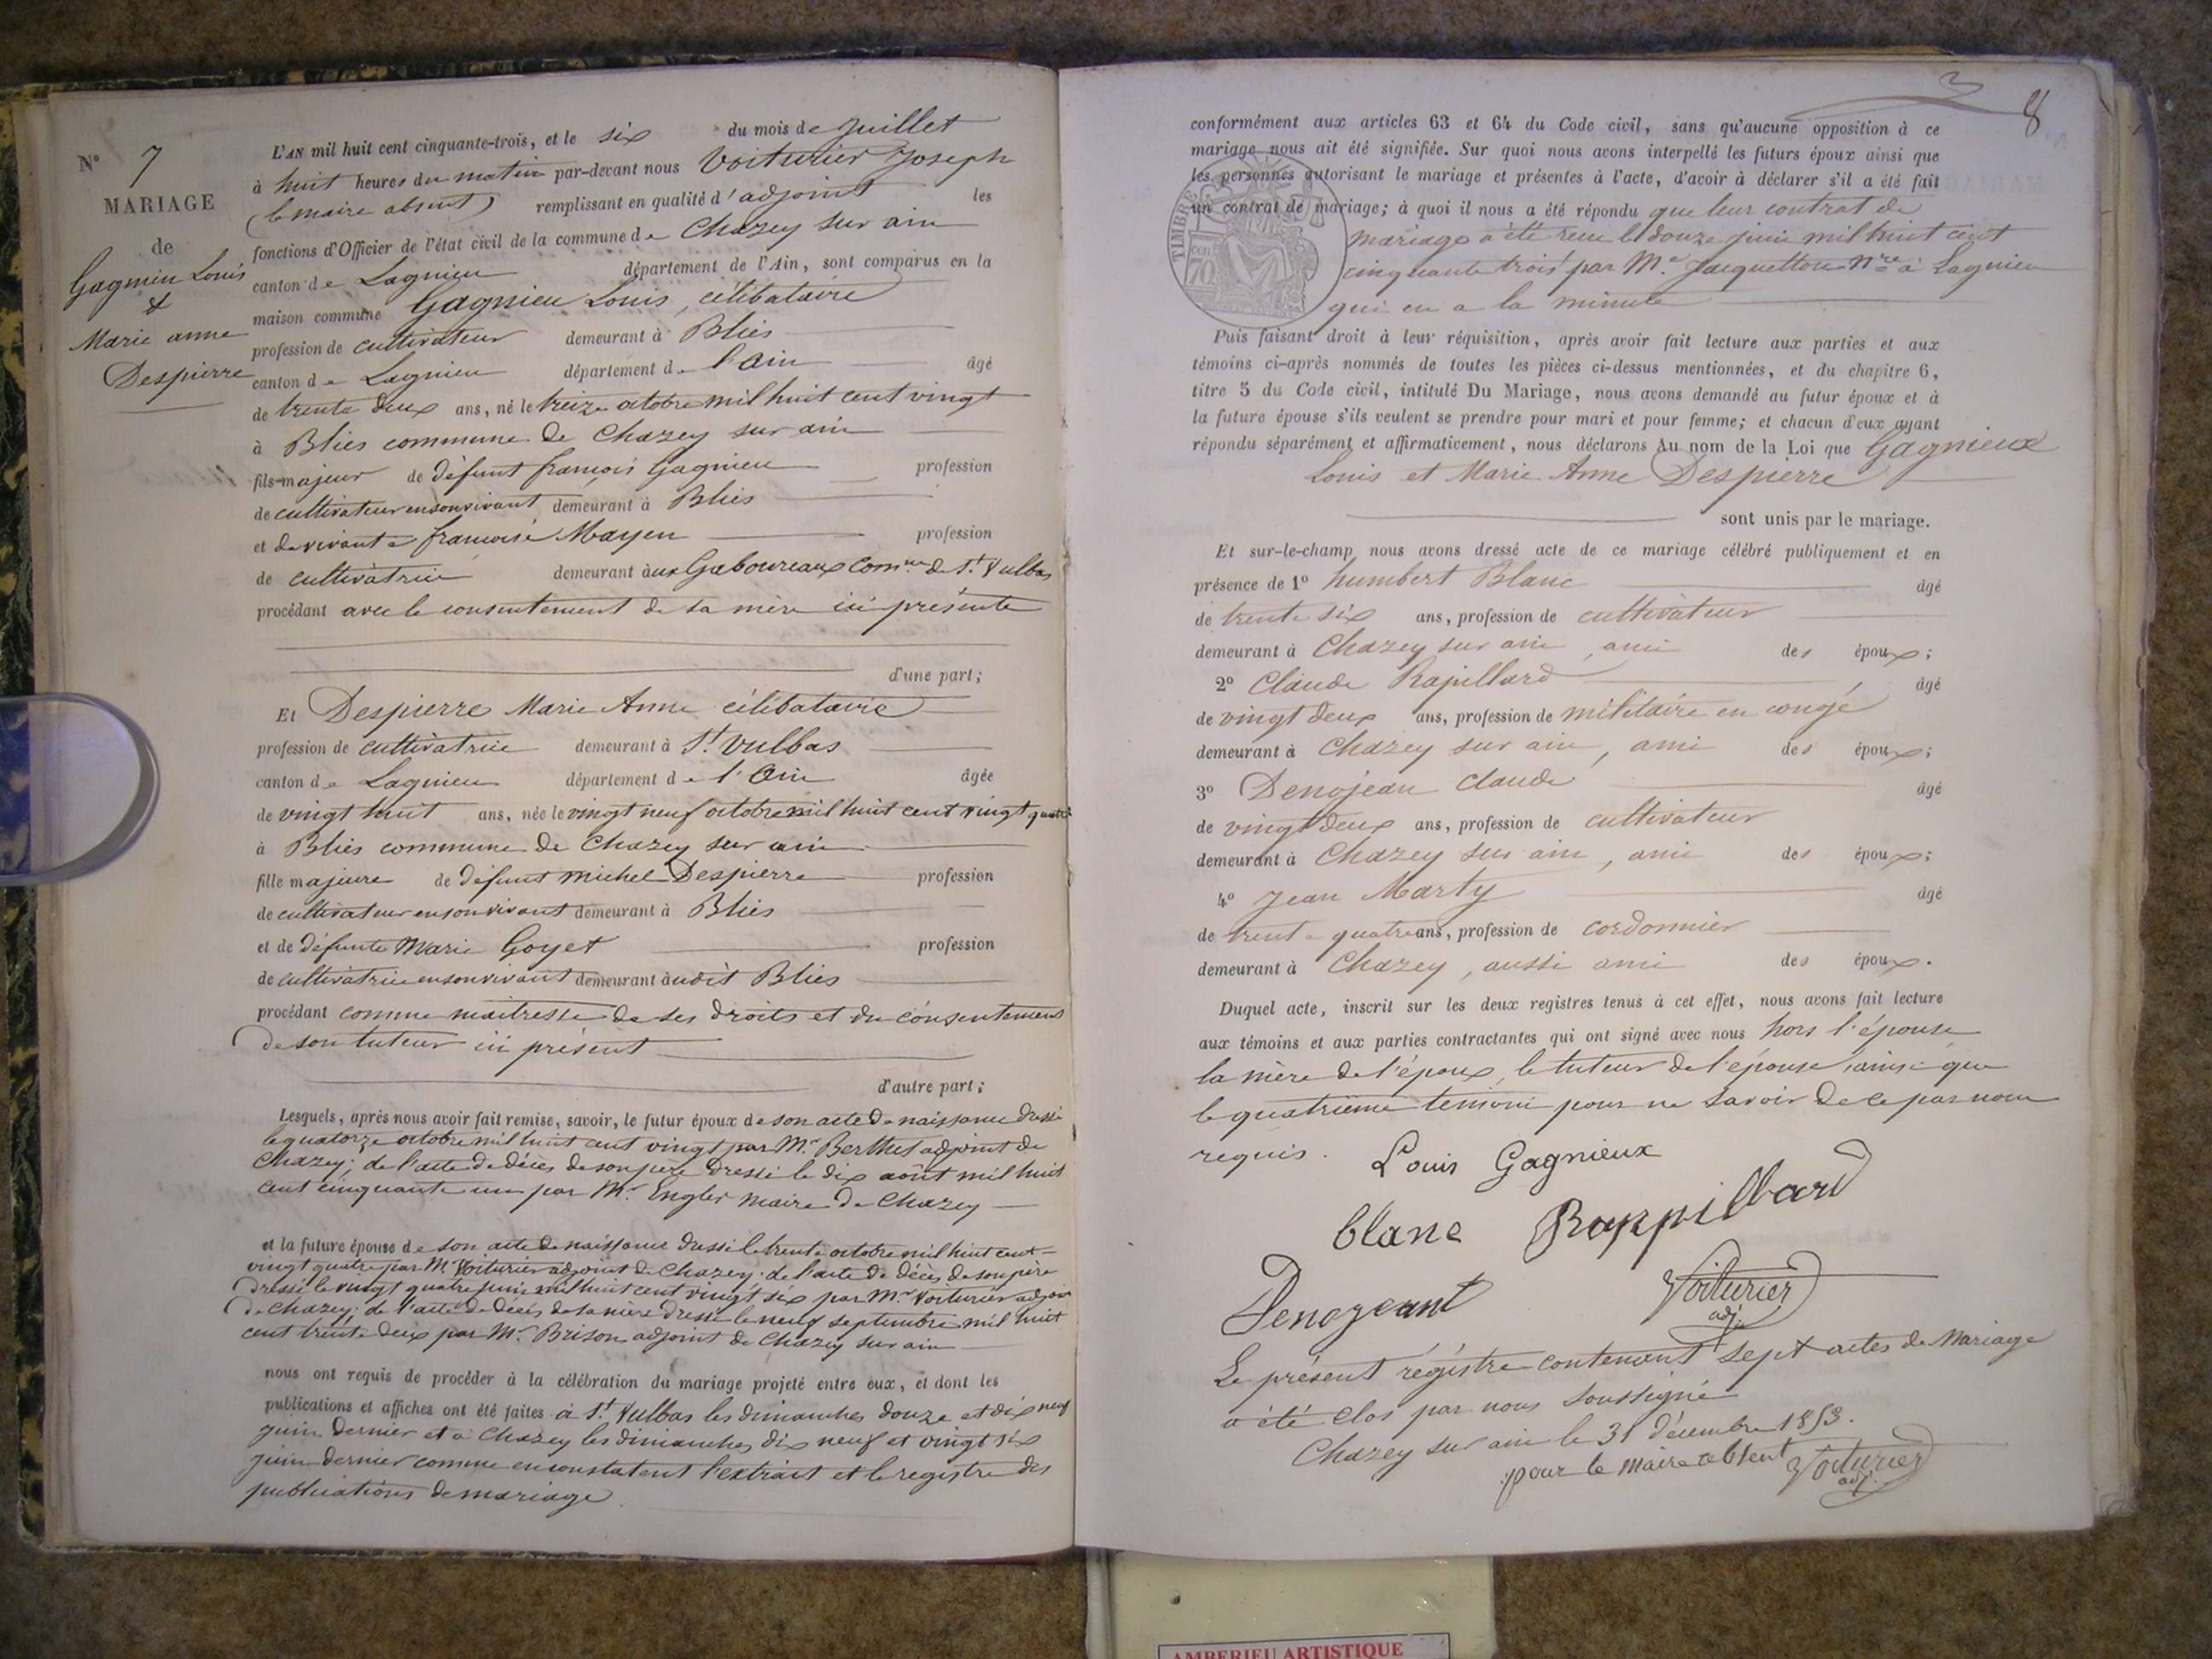 N° 7
MARIAGE
de
Gagnieu Louis
&
Marie anne
Despierre
L'AN mil huit cent cinquante-trois, et le six du mois de Juillet
à huit heures du matin par-devant nous Voiturier Joseph
(le maire absent) remplissant en qualité d'adjoint les
fonctions d'Officier de l'état civil de la commune de Chazey sur ain
canton de Lagnieu département de l'Ain, sont comparus en la
maison commune Gagnieu Louis, célibataire
profession de cultivateur demeurant à Blies
canton de Lagnieu département de l'Ain âgé
de trente deux ans, né le treize octobre mil huit cent vingt
à Blies commune de Chazey sur ain
fils majeur de défunt françois Gagnieu profession
de cultivateur en son vivant demeurant à Blies
et de vivante françoise Mayen profession
de cultivatrice demeurant aux Gaboureaux Comne de St Vulbas
procédant avec le consentement de sa mère ici présente
d'une part;
Et Despierre Marie Anne célibataire
profession de cultivatrice demeurant à St Vulbas
canton de Lagnieu département de l'Ain âgée
de vingt huit ans, née le vingt neuf octobre mil huit cent vingt quatre
à Blies commune de Chazey sur ain
fille majeure de défunt michel Despierre profession
de cultivateur en son vivant demeurant à Blies
et de défunte Marie Goyet profession
de cultivatrice en son vivant demeurant audit Blies
procédant comme maitresse de ses droits et du consentement
de son tuteur ici présent
d'autre part;
Lesquels, après nous avoir fait remise, savoir, le futur époux de son acte de naissance dressé
le quatorze octobre mil huit cent vingt par Mr Berthet adjoint de
Chazey; de l'acte de décès de son père dressé le dix août mil huit
cent cinquante un par Mr Engler maire de Chazey
et la future épouse de son acte de naissance dressé le trente octobre mil huit cent
vingt quatre par Mr Voiturier adjoint de Chazey; de l'acte de décès de son père
dressé le vingt quatre juin mil huit cent vingt six par Mr Voiturier adjoint
de Chazey; de l'acte de décès de sa mère dressé le neuf septembre mil huit
cent trente deux par Mr Brison adjoint de Chazey sur ain
nous ont requis de procéder à la célébration du mariage projeté entre eux, et dont les
publications et affiches ont été faites à St Vulbas les dimanches douze et dix neuf
juin dernier et à Chazey les dimanches dix neuf et vingt six
juin dernier comme en constatent l'extrait et le registre des
publications de mariage.
8
conformément aux articles 63 et 64 du Code civil, sans qu'aucune opposition à ce
mariage nous ait été signifiée. Sur quoi nous avons interpellé les futurs époux ainsi que
les personnes autorisant le mariage et présentes à l'acte, d'avoir à déclarer s'il a été fait
un contrat de mariage; à quoi il nous a été répondu que leur contrat de
mariage a été reçu le douze juin mil huit cent
cinquante trois par Me Jacquetton Nre à Lagnieu
qui en a la minute
TIMBRE
70
Puis faisant droit à leur réquisition, après avoir fait lecture aux parties et aux
témoins ci-après nommés de toutes les pièces ci-dessus mentionnées, et du chapitre 6,
titre 5 du Code civil, intitulé Du Mariage, nous avons demandé au futur époux et à
la future épouse s'ils veulent se prendre pour mari et pour femme; et chacun d'eux ayant
répondu séparément et affirmativement, nous déclarons Au nom de la Loi que Gagnieux
Louis et Marie Anne Despierre
sont unis par le mariage.
Et sur-le-champ nous avons dressé acte de ce mariage célébré publiquement et en
présence de 1° humbert Blanc âgé
de trente six ans, profession de cultivateur
demeurant à Chazey sur ain, ami des époux;
2° Claude Rapillard âgé
de vingt deux ans, profession de militaire en congé
demeurant à Chazey sur ain, ami des époux;
3° Denojean Claude âgé
de vingt deux ans, profession de cultivateur
demeurant à Chazey sur ain, ami des époux;
4° Jean Marty âgé
de trente quatre ans, profession de cordonnier
demeurant à Chazey, aussi ami des époux.
Duquel acte, inscrit sur les deux registres tenus à cet effet, nous avons fait lecture
aux témoins et aux parties contractantes qui ont signé avec nous hors l'épouse
la mère de l'époux, le tuteur de l'épouse ainsi que
le quatrième temoin pour ne savoir de ce par nous
requis. Louis Gagnieux
blanc Rappillard
Denozeant Voiturier
adj.
Le présent régistre contenant sept actes de Mariage
a été clos par nous soussigné
Chazey sur ain le 31 décembre 1853.
pour le maire absent Voiturier
adj.
AMBERIEU ARTISTIQUE